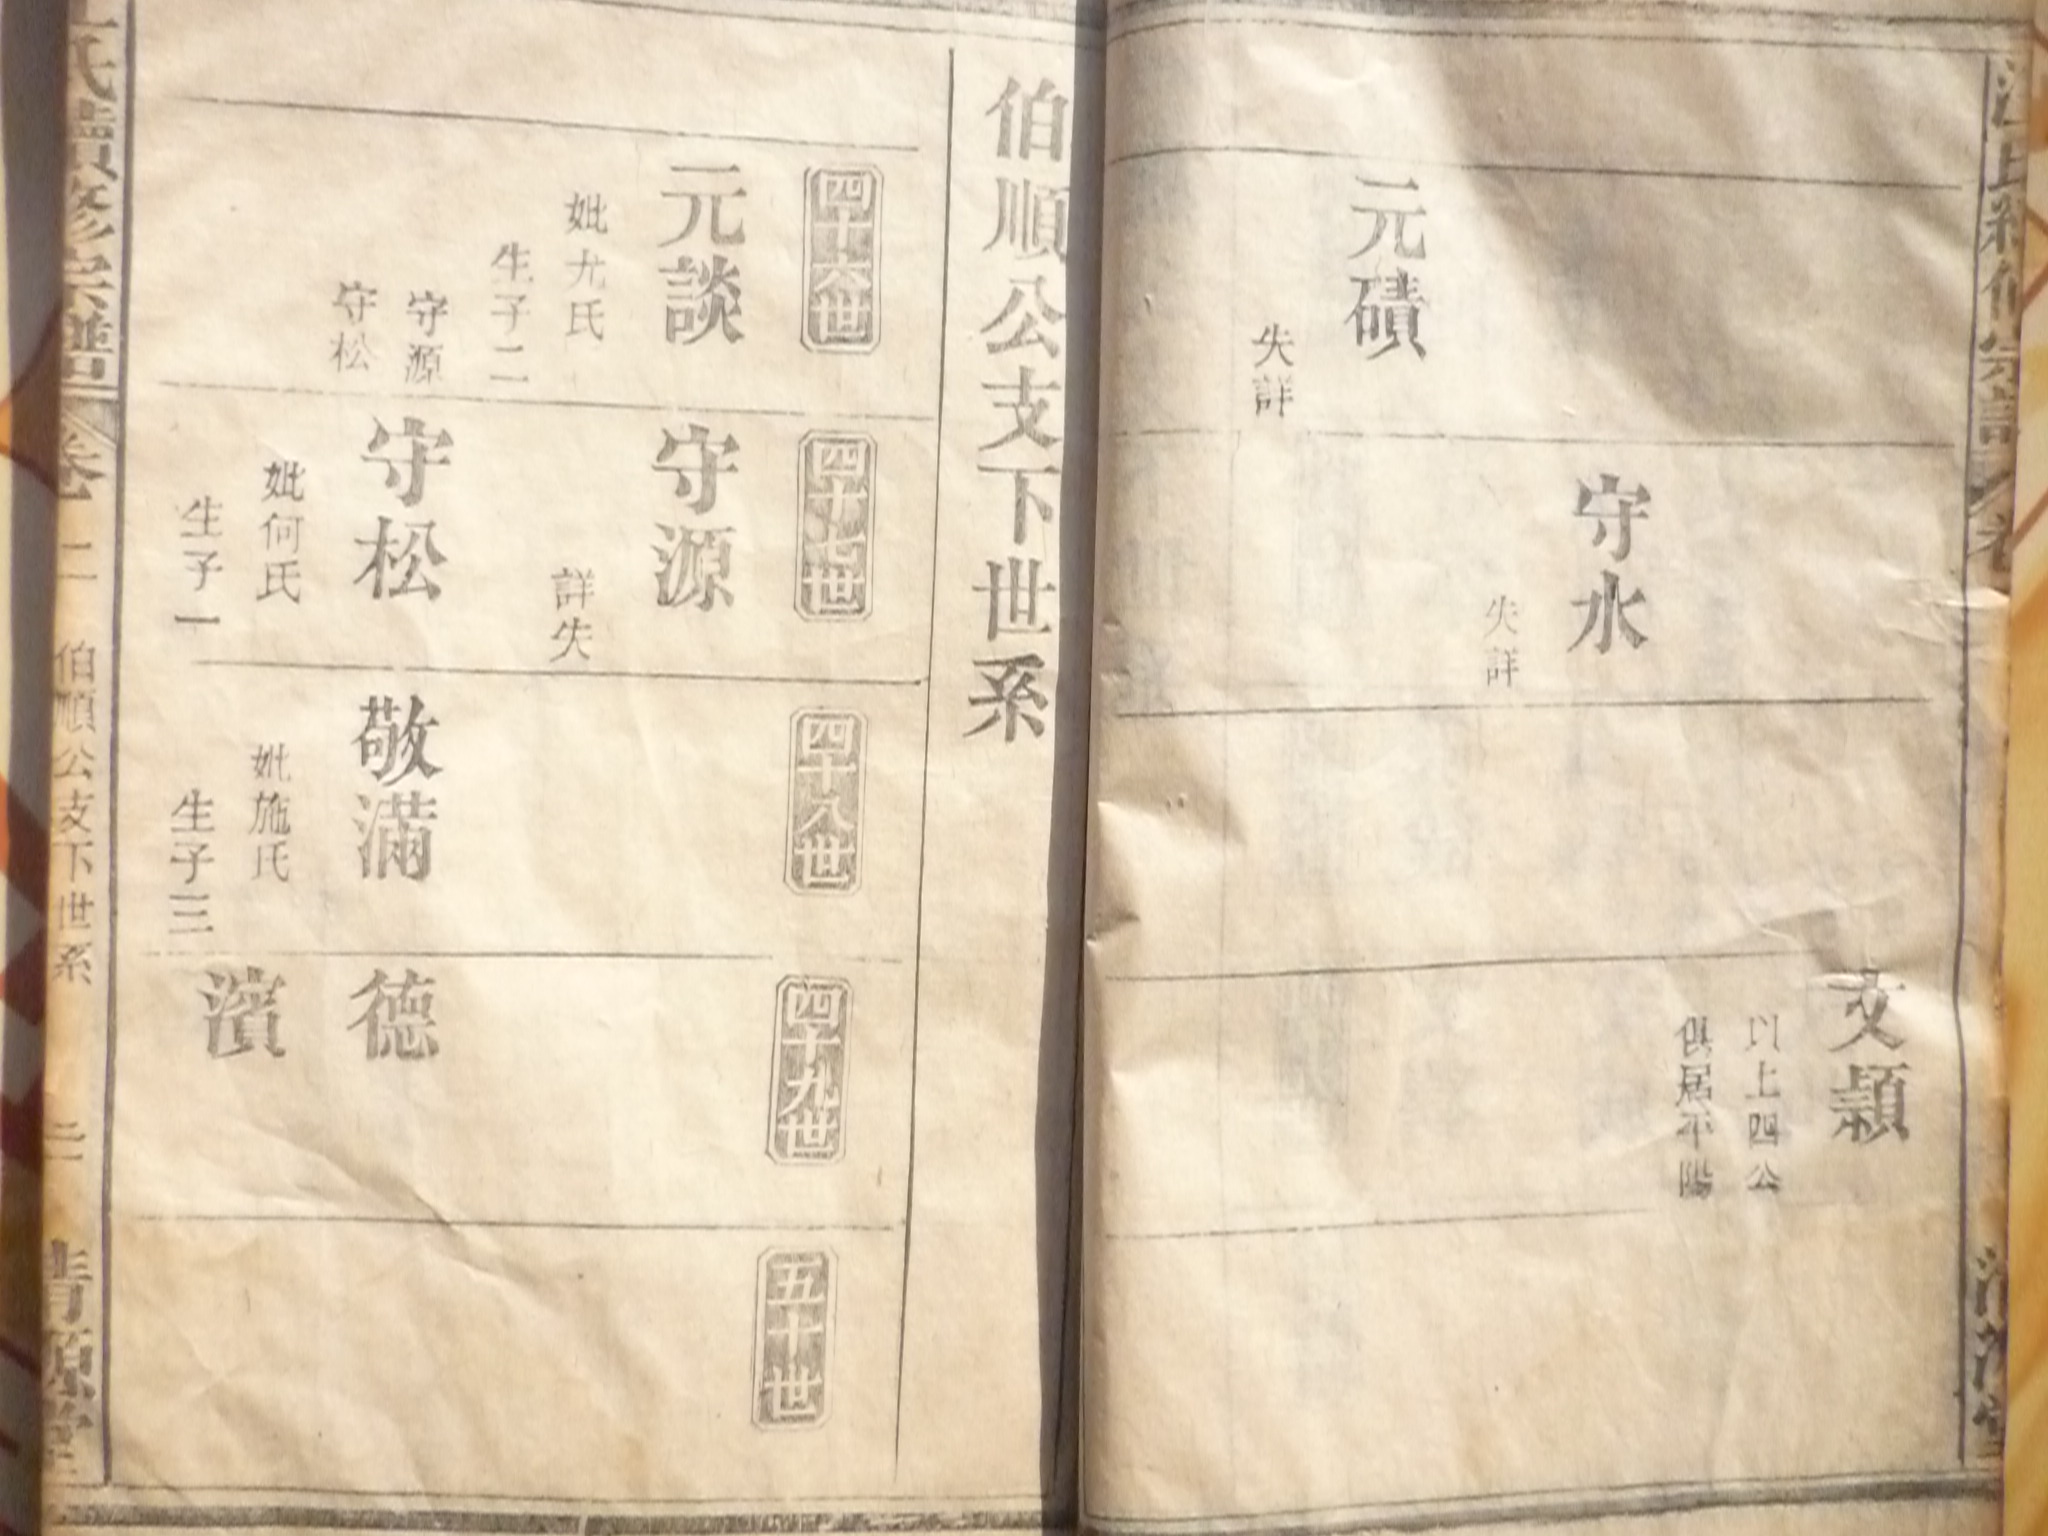 文穎
以上四公
俱居平陽
守水
失詳
元磧
失詳
伯順公支下世系
四十六世
元談
妣尤氏
生子二
守源
守松
四十七世
守源
詳失
守松
妣何氏
生子一
四十八世
敬滿
妣施氏
生子三
四十九世
德
濱
五十世
氏續修宗譜
卷一
二
伯順公支下世系
二
清源堂